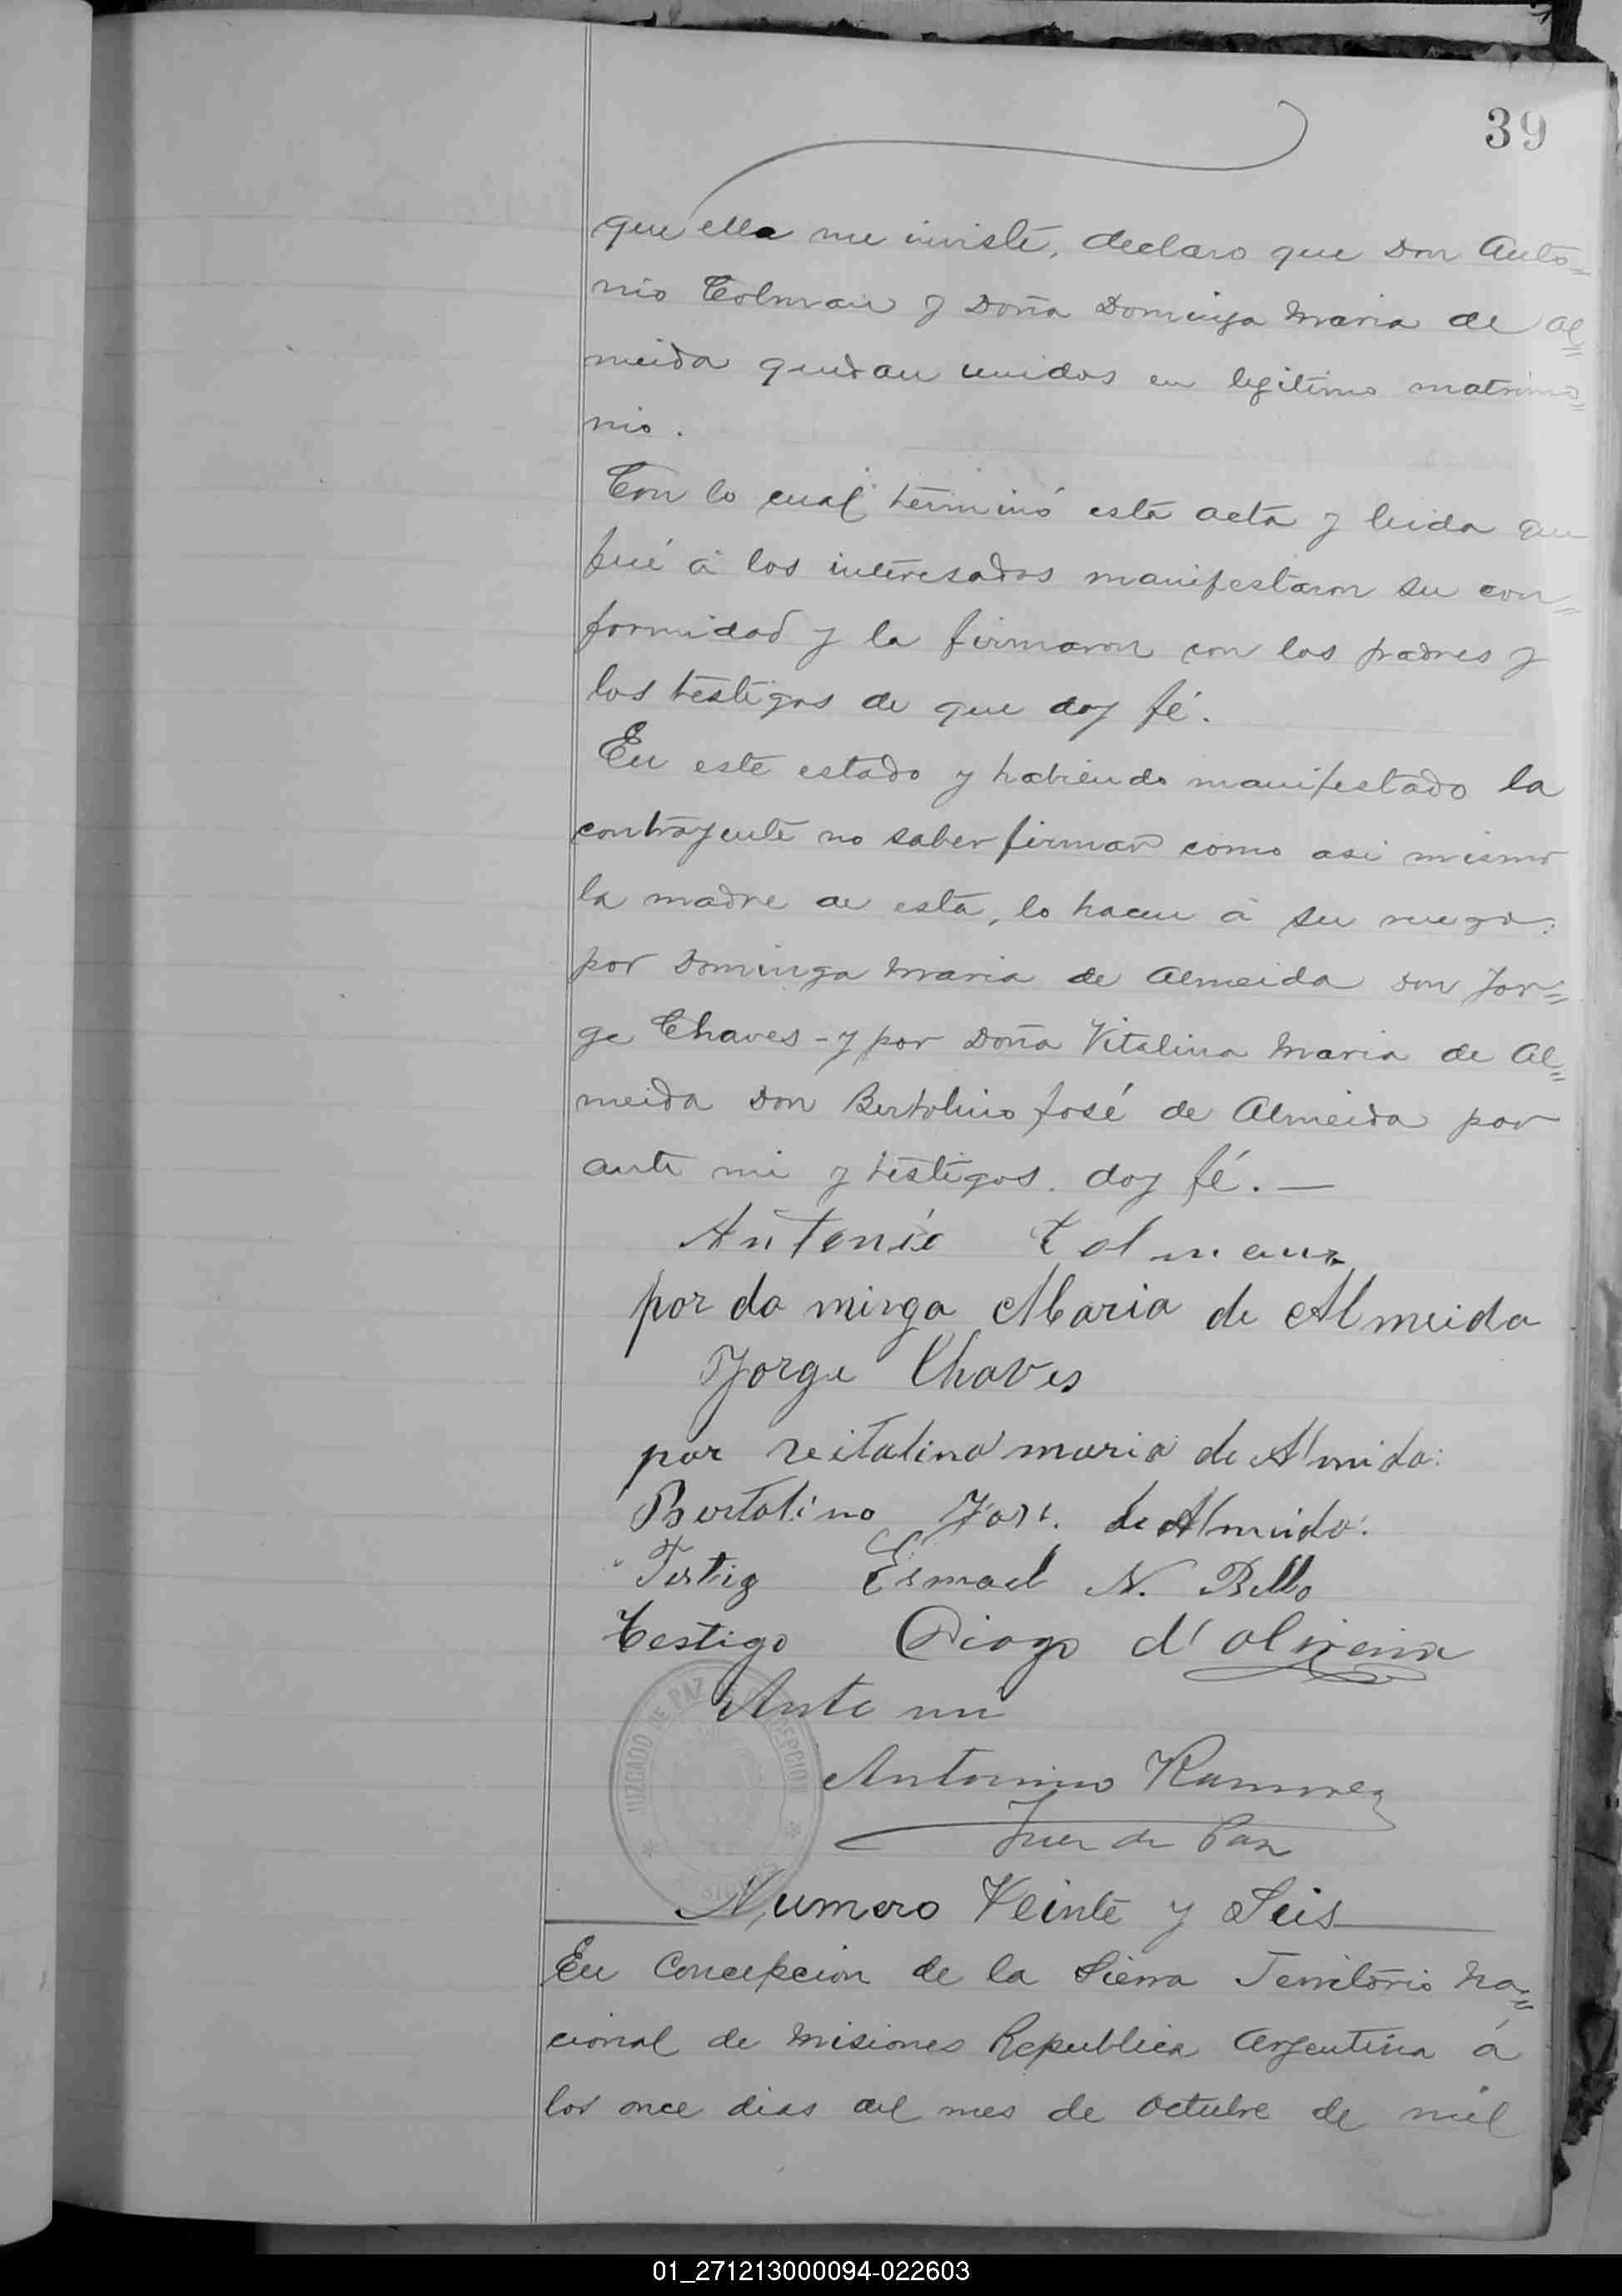 39
que ella me inviste, declaro que Don Anto=
nio Colman y Doña Dominga Maria de Al=
meida quedan unidos en legitimo matrimo=
nio.
Con lo cual terminó esta acta y leida que
fué á los interesados manifestaron su con=
formidad y la firmaron con los padres y
los testigos de que doy fé.
En este estado y habiendo manifestado la
contrayente no saber firmar como asi mismo
la madre de esta, lo hacen á su ruego:
por Dominga Maria de Almeida Don Jor=
ge Chaves - y por Doña Vitalina Maria de Al=
meida Don Bertolino José de Almeida por
ante mi y testigos. doy fé. —
Antonio Colman
por do minga Maria de Almeida
Jorge Chaves
por veitalina maria de Almida:
Bertolino José. de Almeida:
Testig Esmael N. Bello
Testigo Diogo d'oliveira
Ante mi
JUZGADO DE PAZ CONCEPCION
Antonino Ramirez
Juez de Paz
Numero Veinte y Seis
En Concepcion de la Sierra Territorio Na=
cional de Misiones Republica Argentina á
los once dias del mes de Octubre de mil
01_271213000094-022603